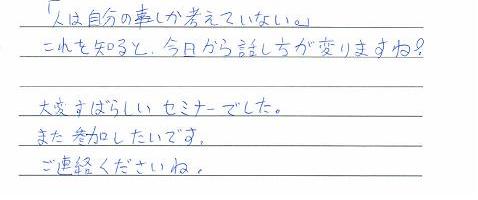 「人は自分の事しか考えていない。」
これを知ると、今日から話し方が変りますね?
大変すばらしい セミナーでした。
また 参加したいです。
ご連絡くださいね。